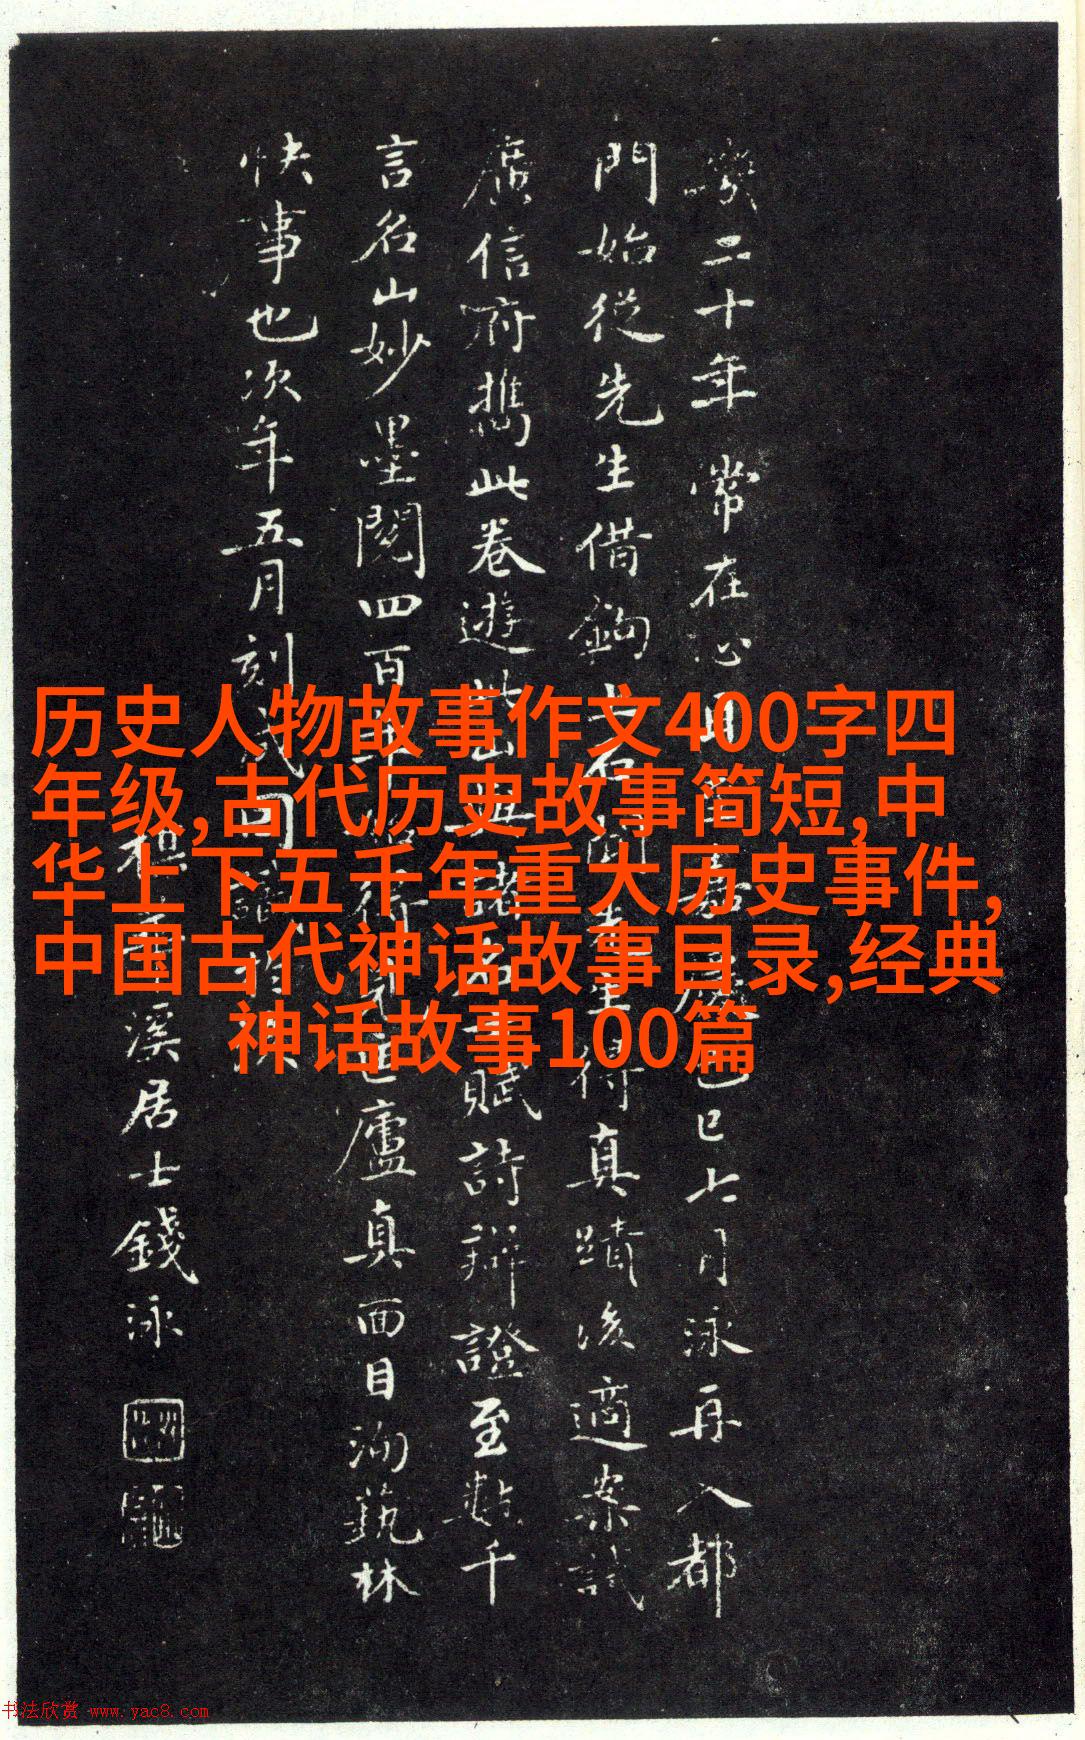 历史人物故事作文400字四
年级,古代历史故事简短,中
华上下五千年重大历史事件,
中国古代神话故事目录,经典
神话故事100篇
二十年常在心目嘉慶己巳七月泳再入都
門始從先生借鉤上石得真蹟後適案試
廣信府攜此卷遊此山與諸名士賦詩辯證至數千
言名山妙墨閱四百年廬真面目洵藝林
快事也次年五月刻成
溪居士錢泳
书法欣赏 www.yac8.com